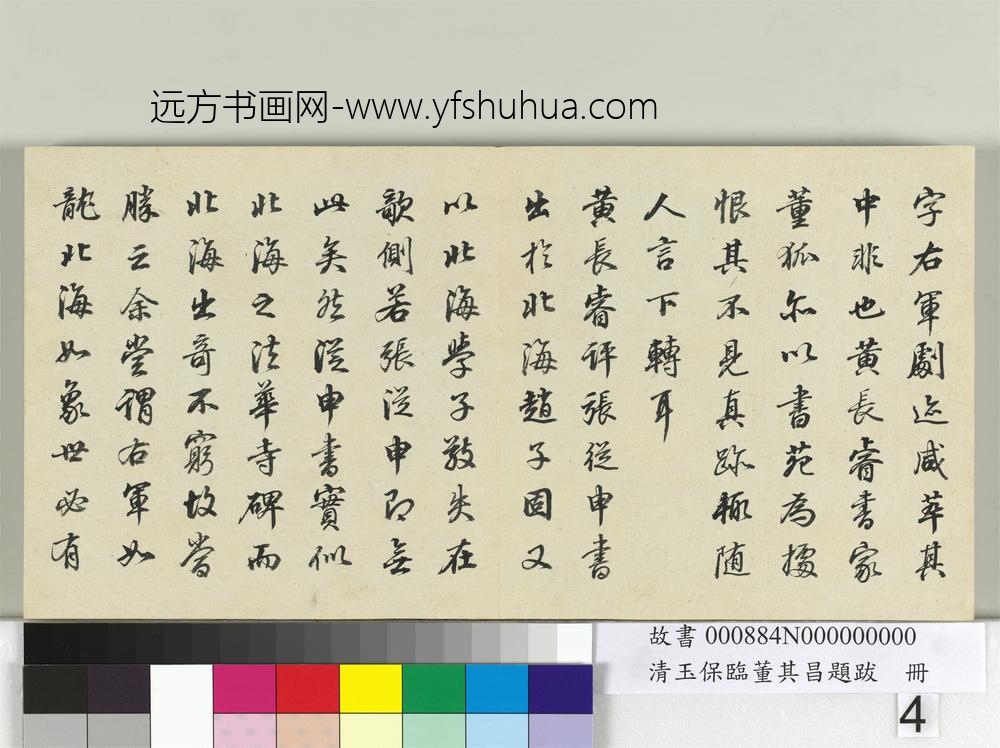 远方书画网-www.yfshuhua.com
字右軍劇迹咸萃其
中非也黄長睿書家
董狐尔以書苑為據
恨其不見真跡極随
人言下轉耳
黄長睿評張從申書
出於北海趙子固又
以北海學子敬失在
欹側若張從申即無
此矣然從申書實似
北海之法華寺碑而
北海出奇不窮故當
勝之余嘗謂右軍如
龍北海如象世必有
故書 000884N000000000
清玉保臨董其昌題跋 冊
4